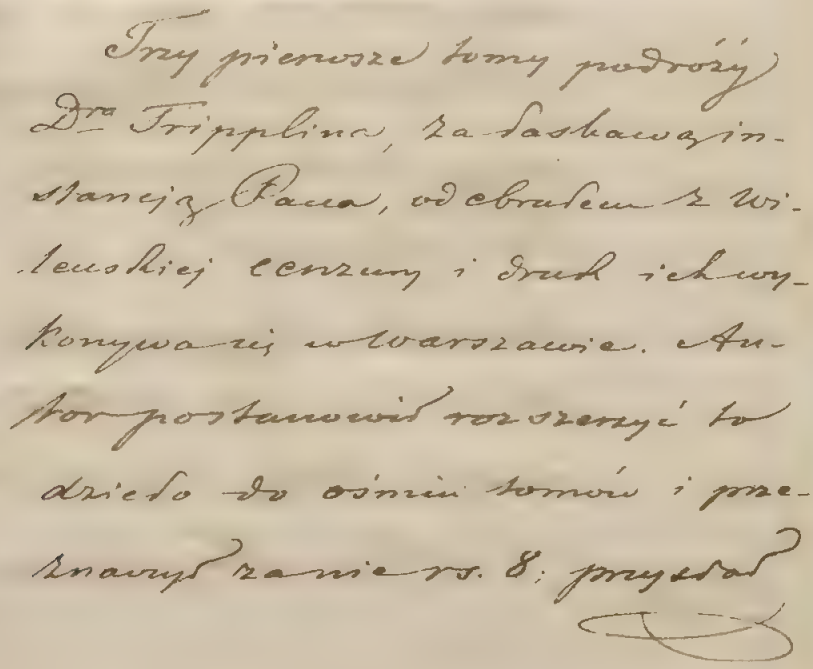 Trzy pierwsze tomy podróży
Dra Tripplina, za łaskawą in-
stancją Pana, odebrałem z Wi-
leńskiej cenzury i druk ich wy-
konywa się w Warszawie. Au-
tor postanowił rozszerzyć to
dzieło do ośmiu tomów i prze-
znaczył zanie rs. 8; przysłał